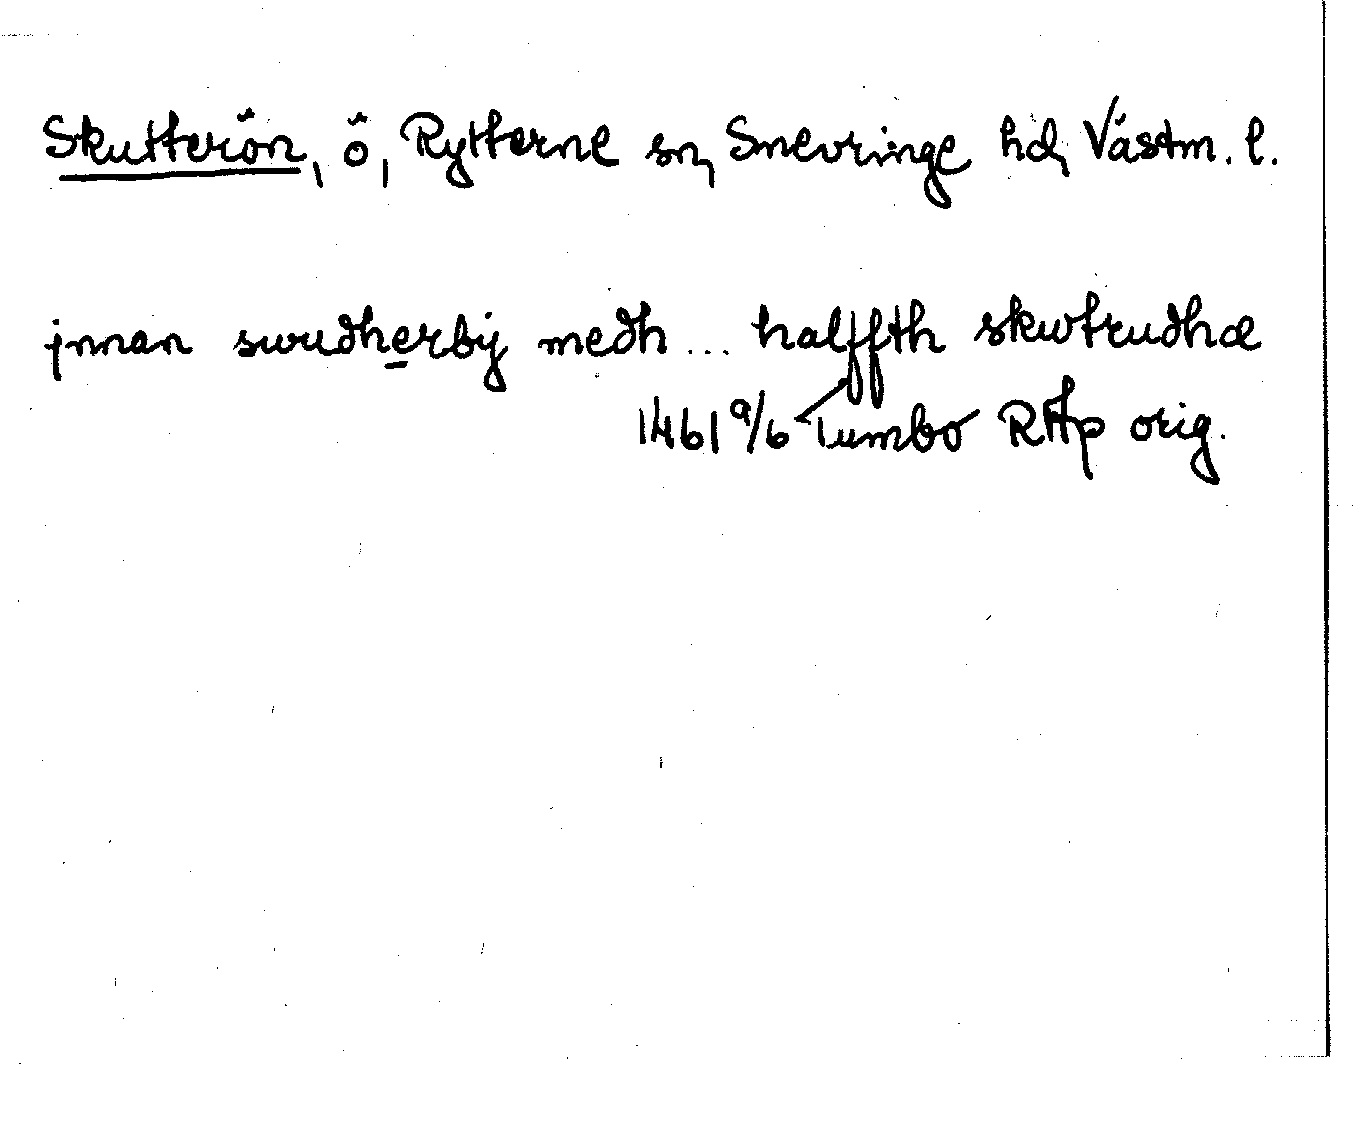 Skutterön, ö, Rytterne sn, Snevringe hd, Västm. l.
jnnan swudherbÿ medh ... halffth skwtrudhæ
1461 9/6 Tumbo RAp orig.